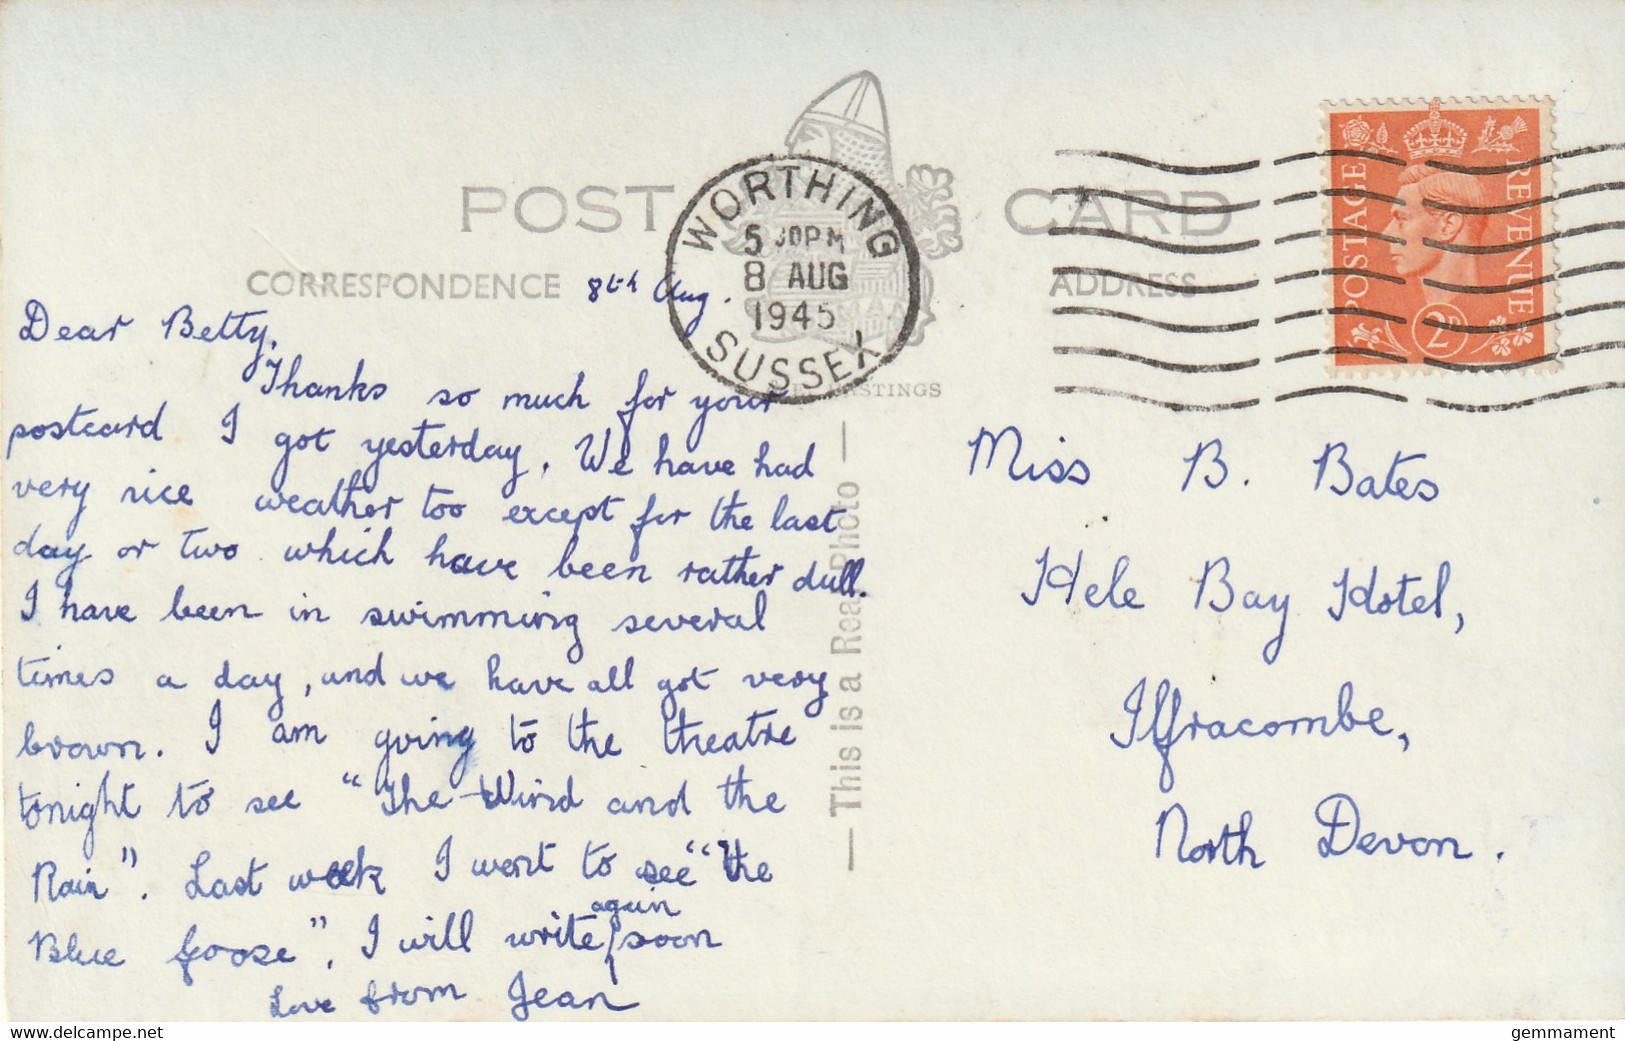 POST CARD
CORRESPONDENCE
ADDRESS
WORTHING
5 30PM
8 AUG
1945
SUSSEX
POSTAGE
REVENUE
2D
HASTINGS
— This is a Real Photo —
8th Aug.
Dear Betty,
Thanks so much for your
postcard I got yesterday. We have had
very nice weather too except for the last
day or two which have been rather dull.
I have been in swimming several
times a day, and we have all got very
brown. I am going to the theatre
tonight to see "The Wind and the
Rain". Last week I went to see "the
Blue Goose". I will write again soon
Love from Jean
Miss B. Bates
Hele Bay Hotel,
Ilfracombe,
North Devon.
http://www.delcampe.net
gemmament